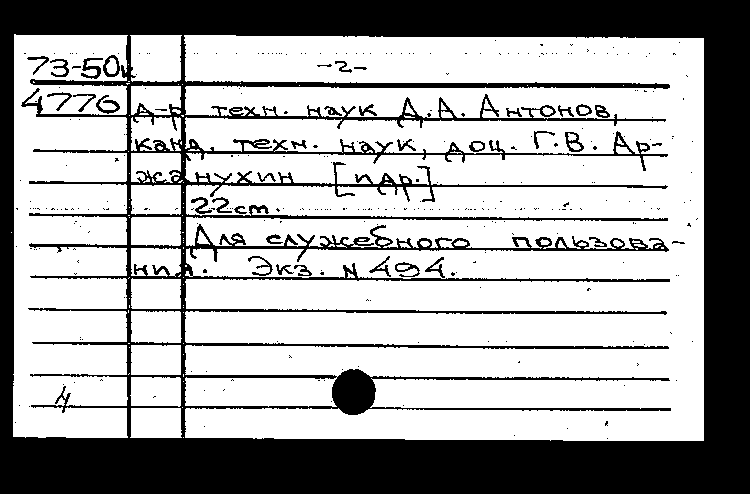 73-50к -2-
4776 д-р техн. наук Д.А. Антонов,
канд. техн. наук, доц. Г.В. Ар-
жанухин [и др.]
22 cm.
Для служебного пользова-
ния. Экз. N 494.